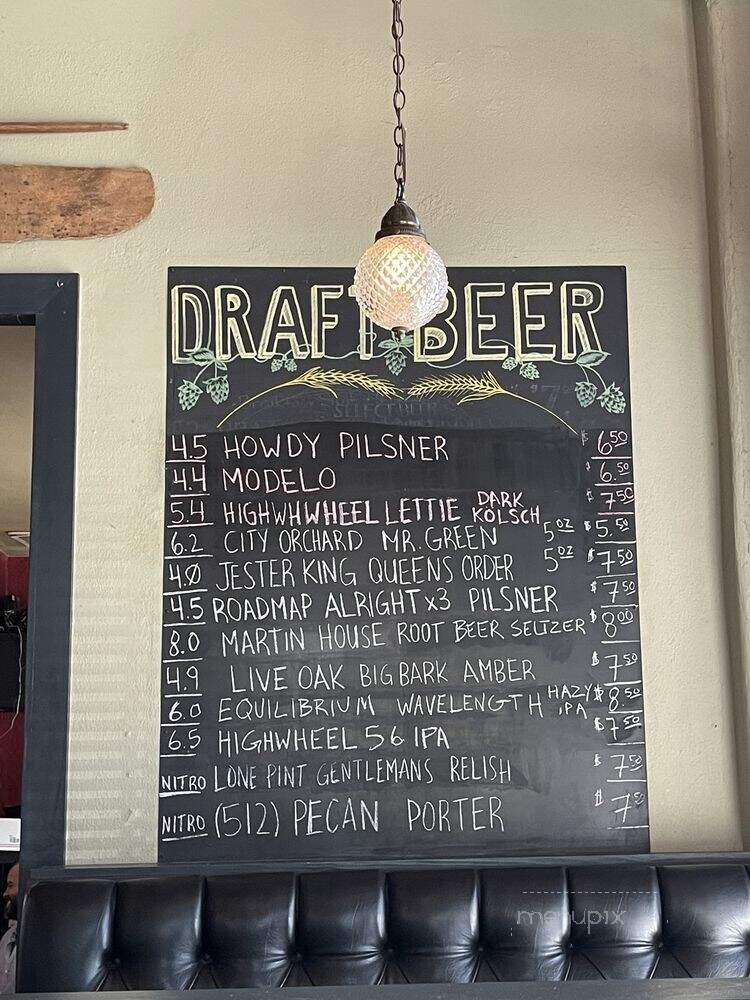 DRAFT BEER
SELECT BEER
4.5 HOWDY PILSNER $6.50
4.4 MODELO $6.50
5.4 HIGHWHWHEEL LETTIE DARK KÖLSCH $7.50
6.2 CITY ORCHARD MR. GREEN 5OZ $5.50
4.0 JESTER KING QUEENS ORDER 5OZ $7.50
4.5 ROADMAP ALRIGHT x3 PILSNER $7.50
8.0 MARTIN HOUSE ROOT BEER SELTZER $8.00
4.9 LIVE OAK BIG BARK AMBER $7.50
6.0 EQUILIBRIUM WAVELENGTH HAZY IPA $8.50
6.5 HIGHWHEEL 56 IPA $7.50
NITRO LONE PINT GENTLEMANS RELISH $7.50
NITRO (512) PECAN PORTER
menupix